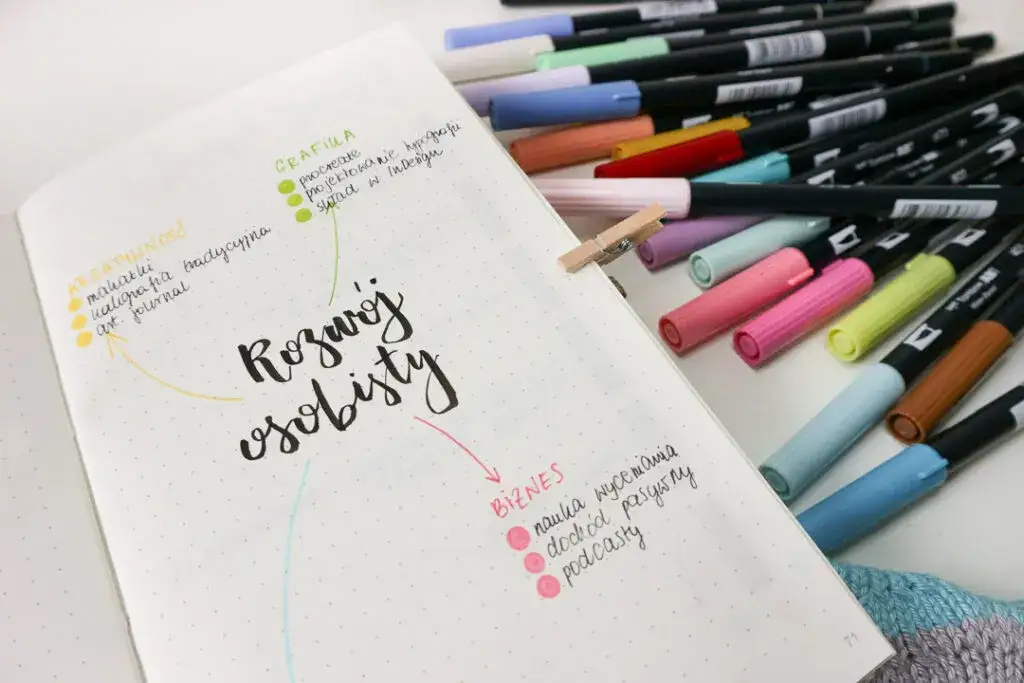 GRAFIKA
procreate
projektowanie typografii
skład w InDesign
KREATYWNOŚĆ
makatki
kaligrafia tradycyjna
art journal
Rozwój
osobisty
BIZNES
nauka wyceniania
dochód pasywny
podcasty
11